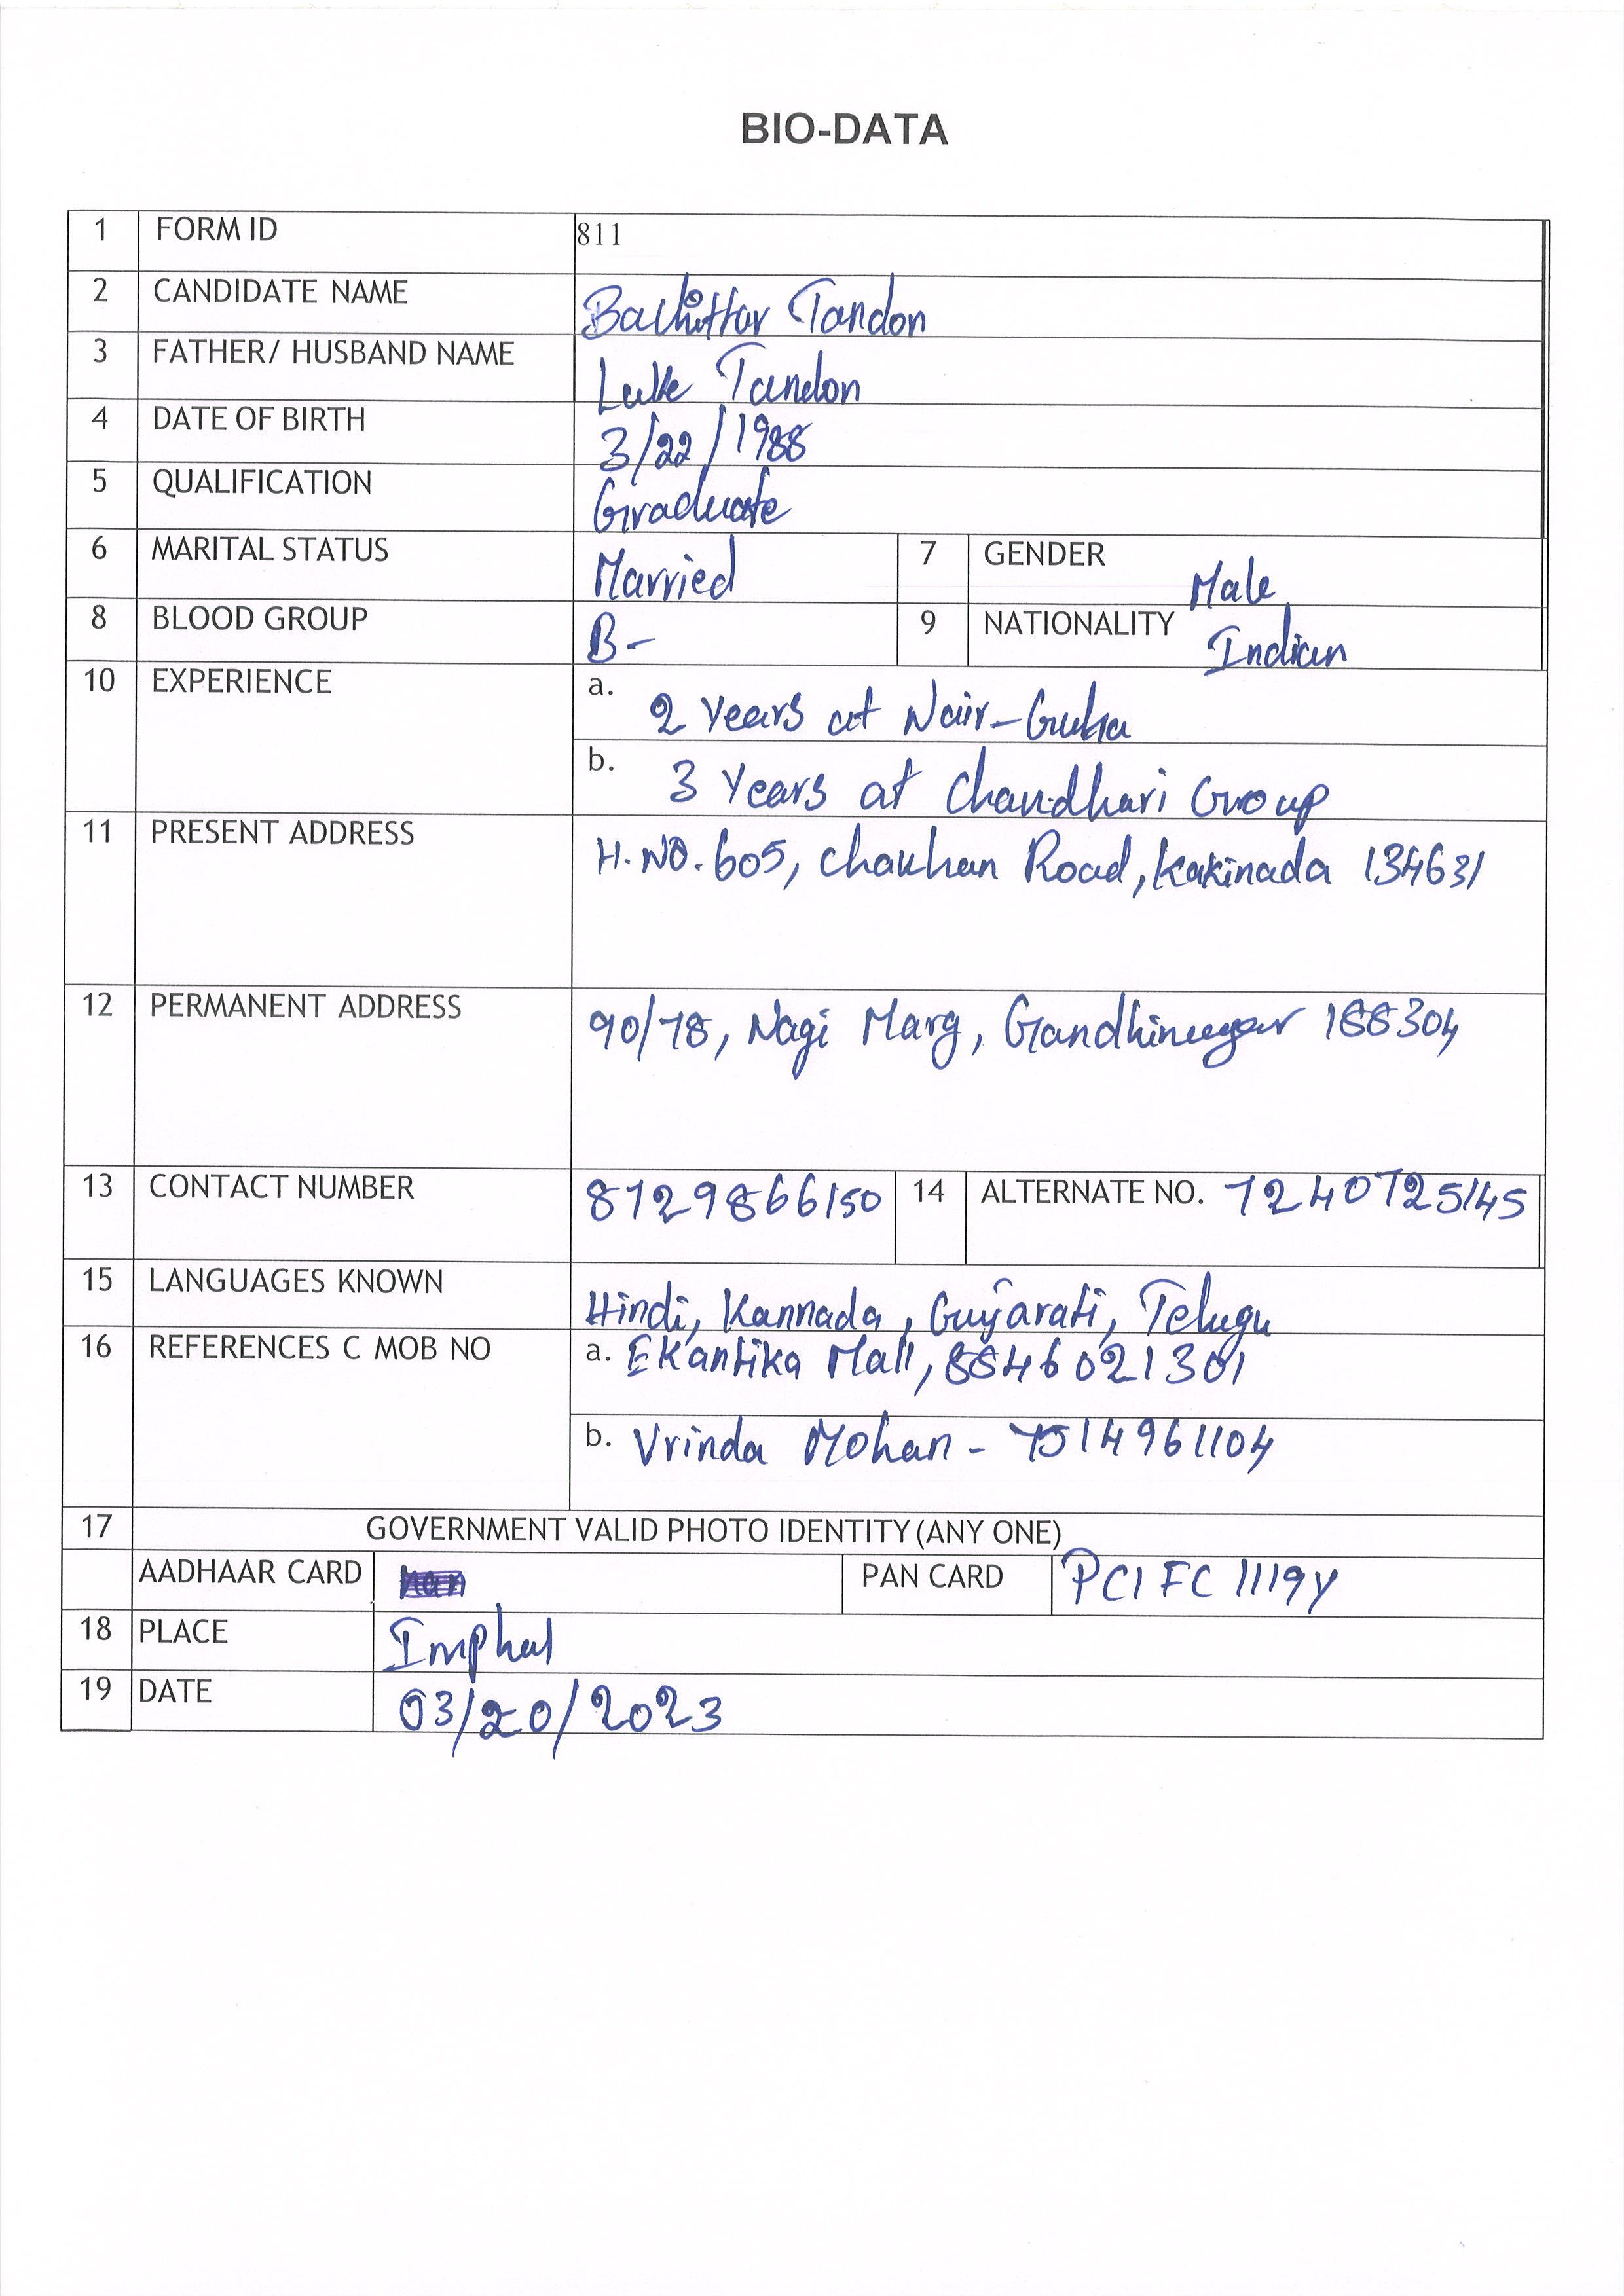 BIO-DATA
1 FORM ID 811
2 CANDIDATE NAME Bachittar Tandon
3 FATHER/ HUSBAND NAME Luke Tandon
4 DATE OF BIRTH 3/22/1988
5 QUALIFICATION Graduate
6 MARITAL STATUS Married 7 GENDER Male
8 BLOOD GROUP B- 9 NATIONALITY Indian
10 EXPERIENCE a. 2 Years at Nair-Guha
b. 3 Years at Chaudhari Group
11 PRESENT ADDRESS H.NO. 605, Chauhan Road, Kakinada 134631
12 PERMANENT ADDRESS 90/78, Nagi Marg, Gandhinagar 188304
13 CONTACT NUMBER 8729866150 14 ALTERNATE NO. 7240725145
15 LANGUAGES KNOWN Hindi, Kannada, Gujarati, Telugu
16 REFERENCES C MOB NO a. Ekantika Mall, 8846021301
b. Vrinda Mohan - 7514961104
17 GOVERNMENT VALID PHOTO IDENTITY (ANY ONE)
AADHAAR CARD PAN CARD PCIFC1119Y
18 PLACE Imphal
19 DATE 03/20/2023